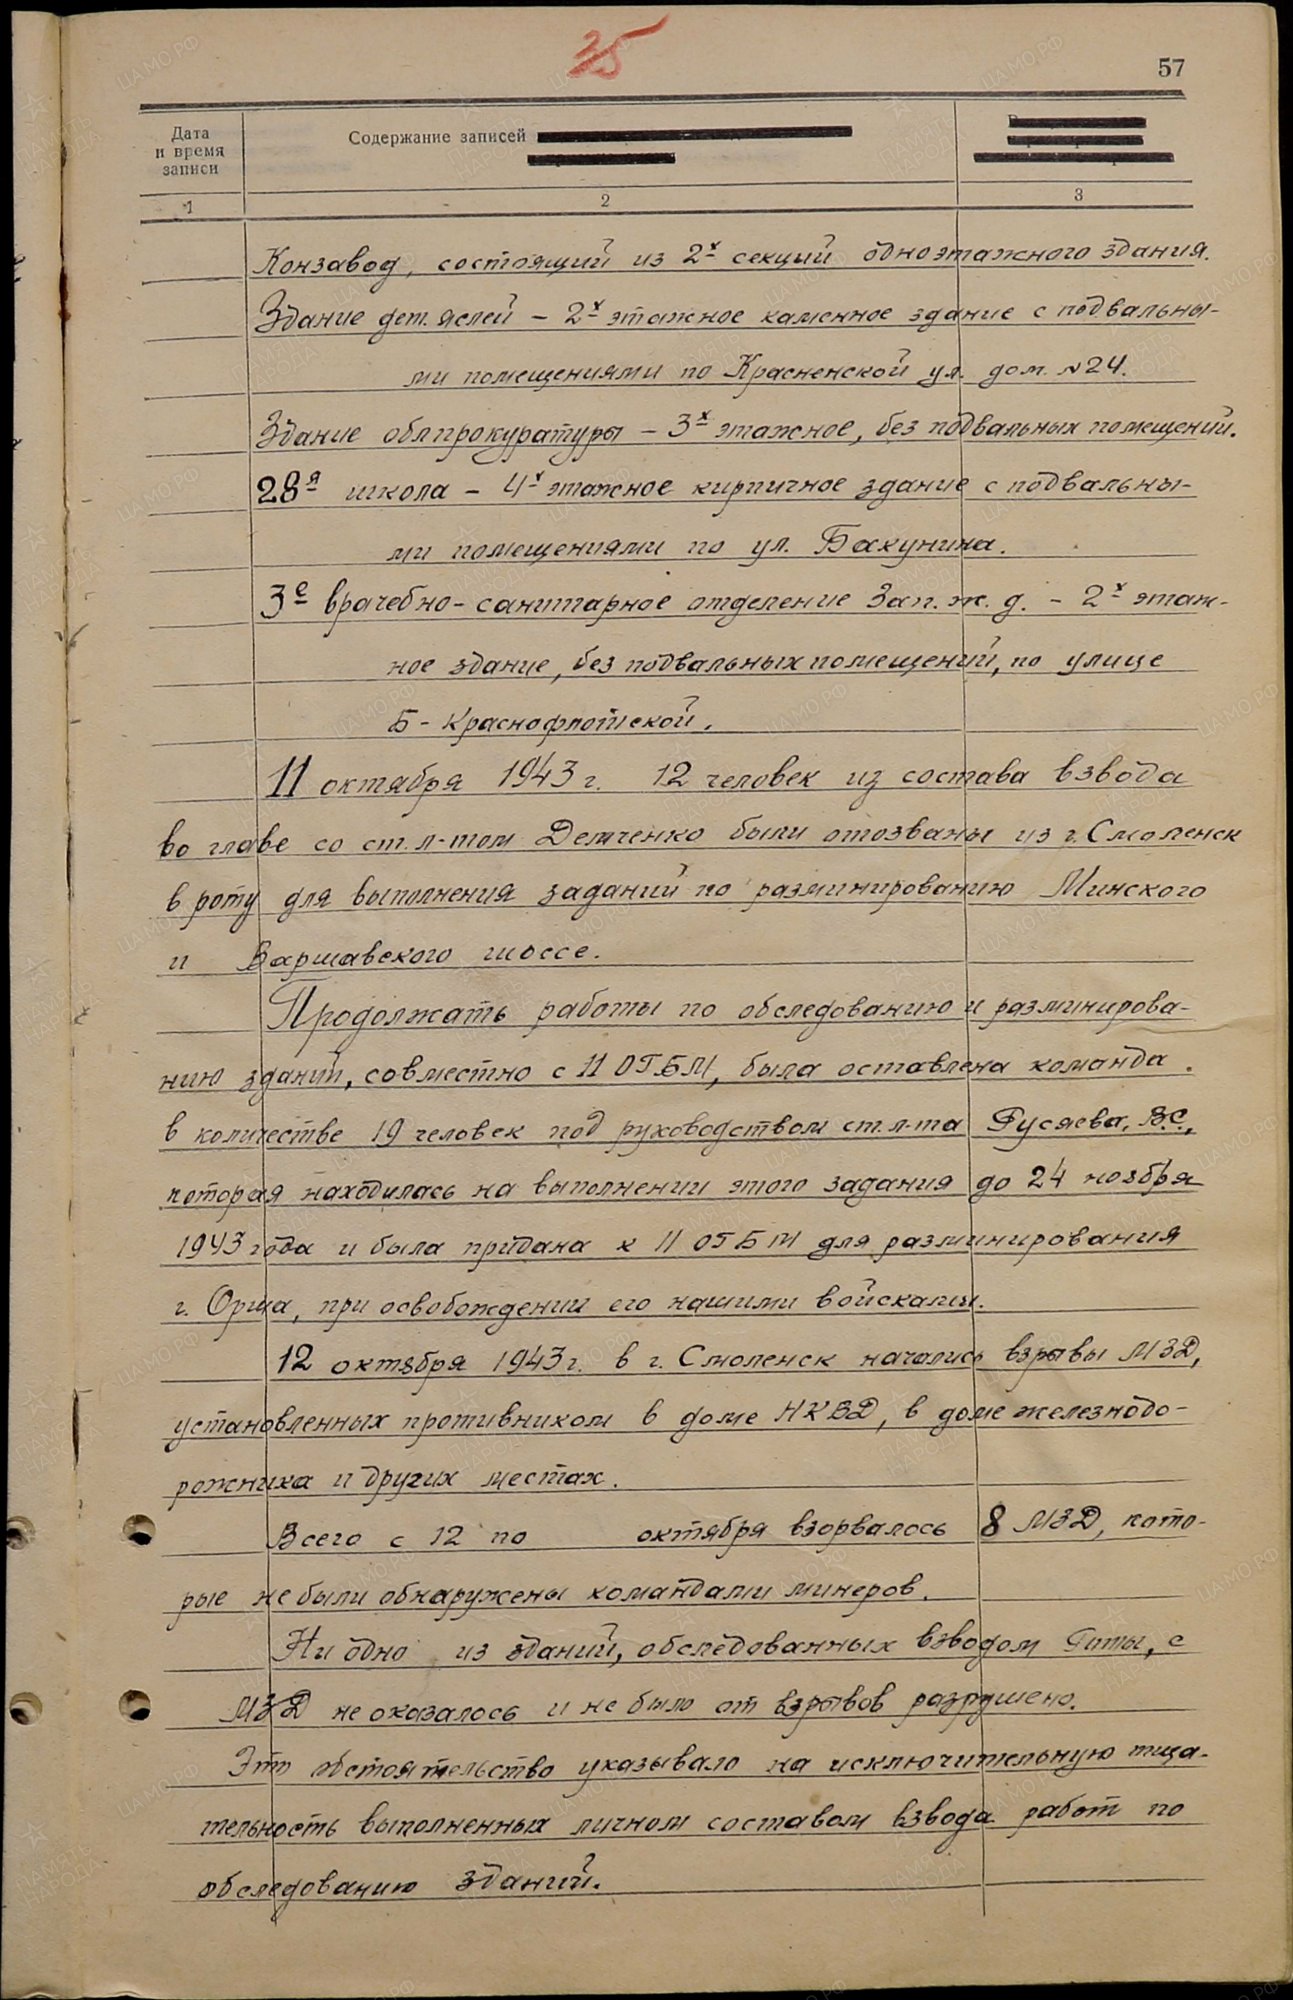 35
57
Дата
и время
записи
Содержание записей
1
2
3
Конзавод, состоящий из 2х секций одноэтажного здания.
Здание дет. яслей – 2х этажное каменное здание с подвальны-
ми помещениями по Красненской ул. дом. №24.
Здание облпрокуратуры – 3х этажное, без подвальных помещений.
28я школа – 4х этажное кирпичное здание с подвальны-
ми помещениями по ул. Бакунина.
3е врачебно-санитарное отделение Зап. ж. д. – 2х этаж-
ное здание, без подвальных помещений, по улице
Б-Краснофлотской.
11 октября 1943 г. 12 человек из состава взвода
во главе со ст. л-том Демченко были отозваны из г. Смоленск
в роту для выполнения заданий по разминированию Минского
и Варшавского шоссе.
Продолжать работы по обследованию и разминирова-
нию зданий, совместно с 11 ОГБМ, была оставлена команда
в количестве 19 человек под руководством ст. л-та Русяева, В.С.,
которая находилась на выполнении этого задания до 24 ноября
1943 года и была придана к 11 ОГБМ для разминирования
г. Орша, при освобождении его нашими войсками.
12 октября 1943 г. в г. Смоленск начались взрывы МЗД,
установленных противником в доме НКВД, в доме железнодо-
рожника и других местах.
Всего с 12 по октября взорвалось 8 МЗД, кото-
рые не были обнаружены командами минеров.
Ни одно из зданий, обследованных взводом роты, с
МЗД не оказалось и не было от взрывов разрушено.
Это обстоятельство указывало на исключительную тща-
тельность выполненных личном составом взвода работ по
обследованию зданий.